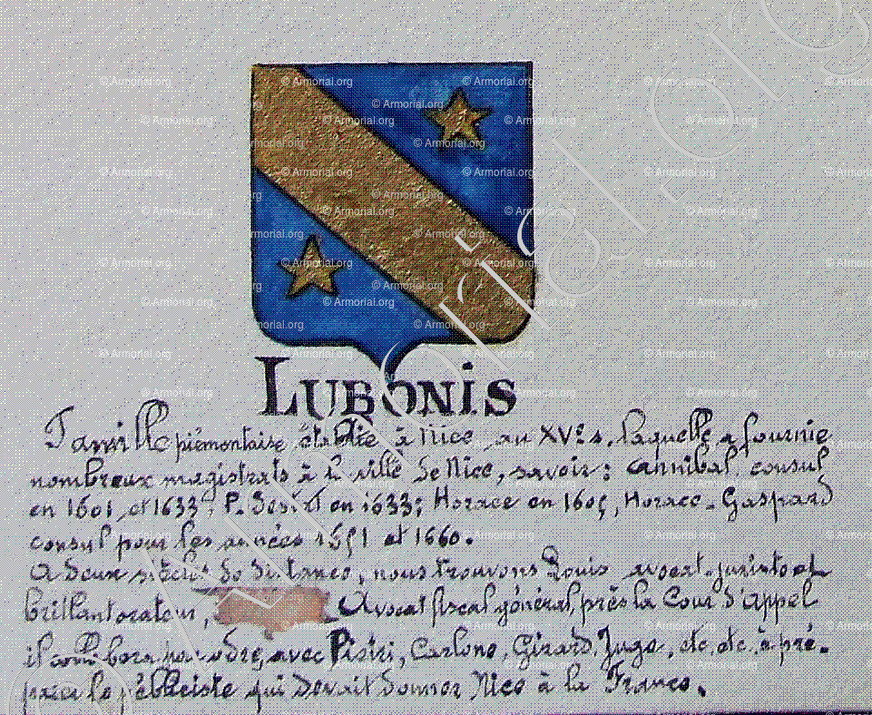 LUBONIS
Famille piémontaise établie à Nice au XVe s. laquelle a fournie
nombreux magistrats à la ville de Nice, savoir: Annibal consul
en 1601 et 1633, en 1633; Horace en 1605, Horace-Gaspard
consul pour les années 1651 et 1660.
A deux siècles de distance, nous trouvons Louis avocat-juriste et
brillant orateur, Avocat fiscal général, près la Cour d'appel
il avec Piétri, Carlone, Girard, Juge, etc, etc, à pré-
parer le plébiciste qui devait donner Nice à la France.
© Armorial.org